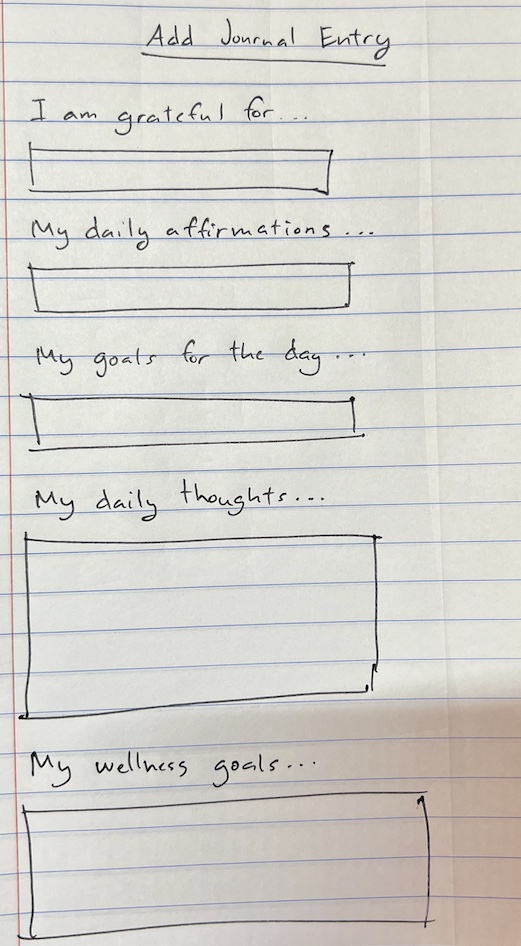 Add Journal Entry
I am grateful for...
My daily affirmations...
My goals for the day...
My daily thoughts...
My wellness goals...